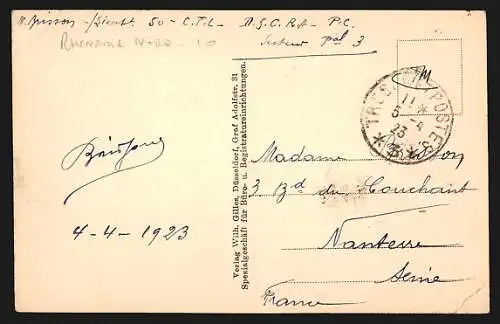 Brisson - Sergent 50 - C.T.L - D.S.C.R.A - P.C.
Secteur pal 3
RHENANIE NORD - 10
FM
TRESOR ET POSTES
11 *
5 - 4
23
* 3 *
Brisson
4-4-1923
Verlag Wilh. Gilles, Düsseldorf, Graf Adolfstr. 31
Spezialgeschäft für Büro- u. Registratureinrichtungen.
Madame Brisson
3 Bd du Couchant
Nanterre
Seine
France